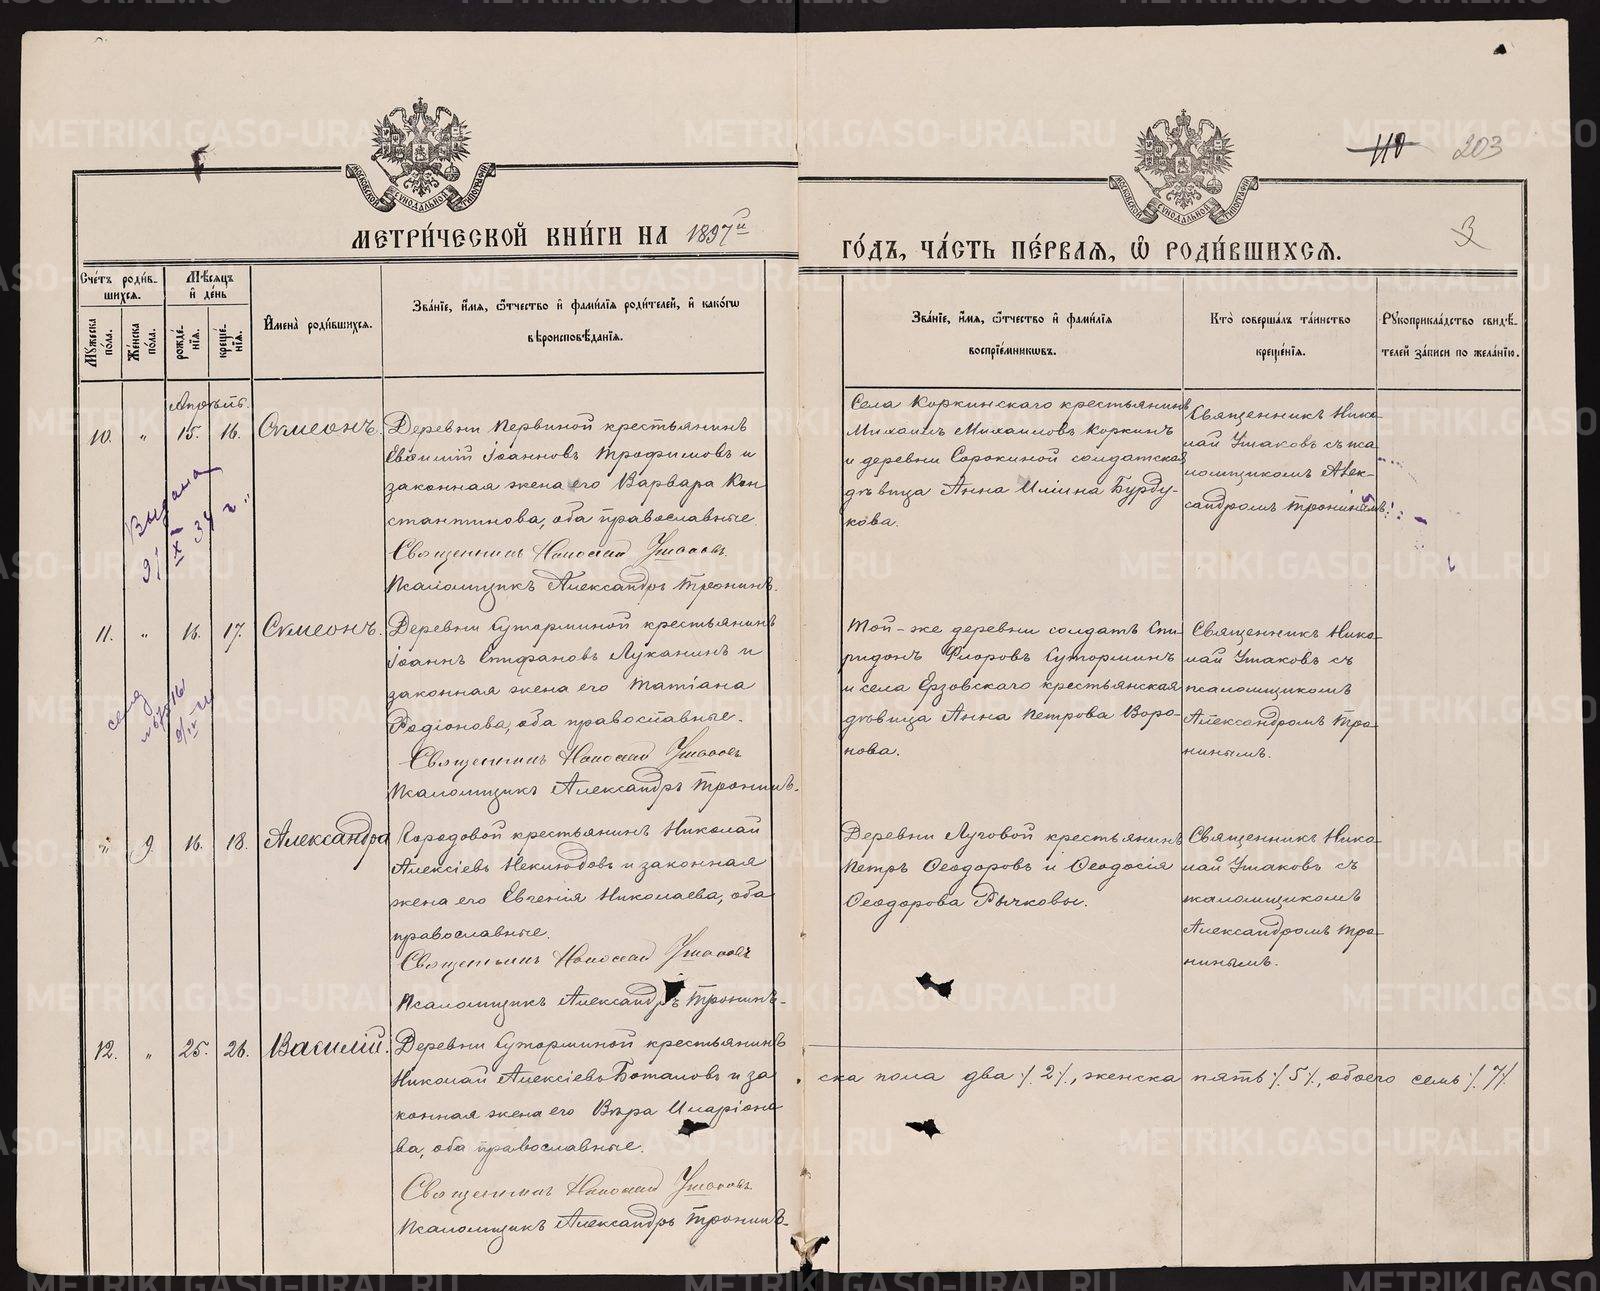 110 203
3
МОСКОВСКОЙ СѴНОДАЛЬНОЙ ТИПОГРАФІИ
МОСКОВСКОЙ СѴНОДАЛЬНОЙ ТИПОГРАФІИ
МЕТРИ́ЧЕСКОЙ КНИ́ГИ НА 1897й
ГО́ДЪ, ЧА́СТЬ ПЕ́РВАѦ, Ѡ҆ РОДИ́ВШИХСѦ.
Сче́тъ роди́в-
шихсѧ.
Мѣ́сѧцъ
и҆ де́нь
Мꙋ́жеска
по́ла.
Же́нска
по́ла.
рожде́-
нїѧ.
креще́-
нїѧ.
И҆мена̀ роди́вшихсѧ.
Зва́нїе, и҆́мѧ, ѻ҆́тчество и҆ фами́лїѧ роди́телей, и҆ како́гѡ
вѣроисповѣ́данїѧ.
Зва́нїе, и҆́мѧ, ѻ҆́тчество и҆ фами́лїѧ
воспрїе́мникѡвъ.
Кто̀ соверша́лъ та́инство
креще́нїѧ.
Рꙋкоприкла́дство свидѣ́-
телей за́писи по жела́нїю.
10. „ 15. 16. Симеонъ.
Деревни Первиной крестьянинъ
Василій Іоанновъ Трофимовъ и
законная жена его Варвара Кон
стантинова, оба православные.
Священникъ Николай Ушаковъ.
Псаломщикъ Александръ Тронинъ.
Села Коркинскаго крестьянинъ
Михаилъ Михаиловъ Коркинъ
и деревни Сорокиной солдатская
дѣвица Анна Иліина Бурду-
кова.
Священникъ Нико-
лай Ушаковъ съ пса-
ломщикомъ Алек-
сандромъ Тронинымъ.
Выдана
11. „ 16. 17. Симеонъ.
Деревни Суторминой крестьянинъ
Іоаннъ Епифановъ Луканинъ и
законная жена его Татіана
Родіонова, оба православные.
Священникъ Николай Ушаковъ
Псаломщикъ Александръ Тронинъ.
Той-же деревни солдатъ Спи-
ридонъ Флоровъ Суторминъ
и села Ерзовскаго крестьянская
дѣвица Анна Петрова Воро-
нова.
Священникъ Нико-
лай Ушаковъ съ
псаломщикомъ
Александромъ Тро-
нинымъ.
„ 9 16. 18. Александра
Городовой крестьянинъ Николай
Алексіевъ Неклюдовъ и законная
жена его Евгенія Николаева, оба
православные.
Священникъ Николай Ушаковъ
Псаломщикъ Александръ Тронинъ-
Деревни Луговой крестьянинъ
Петръ Ѳеодоровъ и Ѳеодосія
Ѳеодорова Рычковы.
Священникъ Нико-
лай Ушаковъ съ
псаломщикомъ
Александромъ Тро-
нинымъ.
12. „ 25. 26. Василій.
Деревни Суторминой крестьянинъ
Николай Алексіевъ Боталовъ и за
конная жена его Вѣра Иларіоно
ва, оба православные.
Священникъ Николай Ушаковъ.
Псаломщикъ Александръ Тронинъ-
ска пола два ⁒ 2 ⁒, женска пять ⁒ 5 ⁒, обоего семь ⁒ 7 ⁒
METRIKI.GASO-URAL.RU